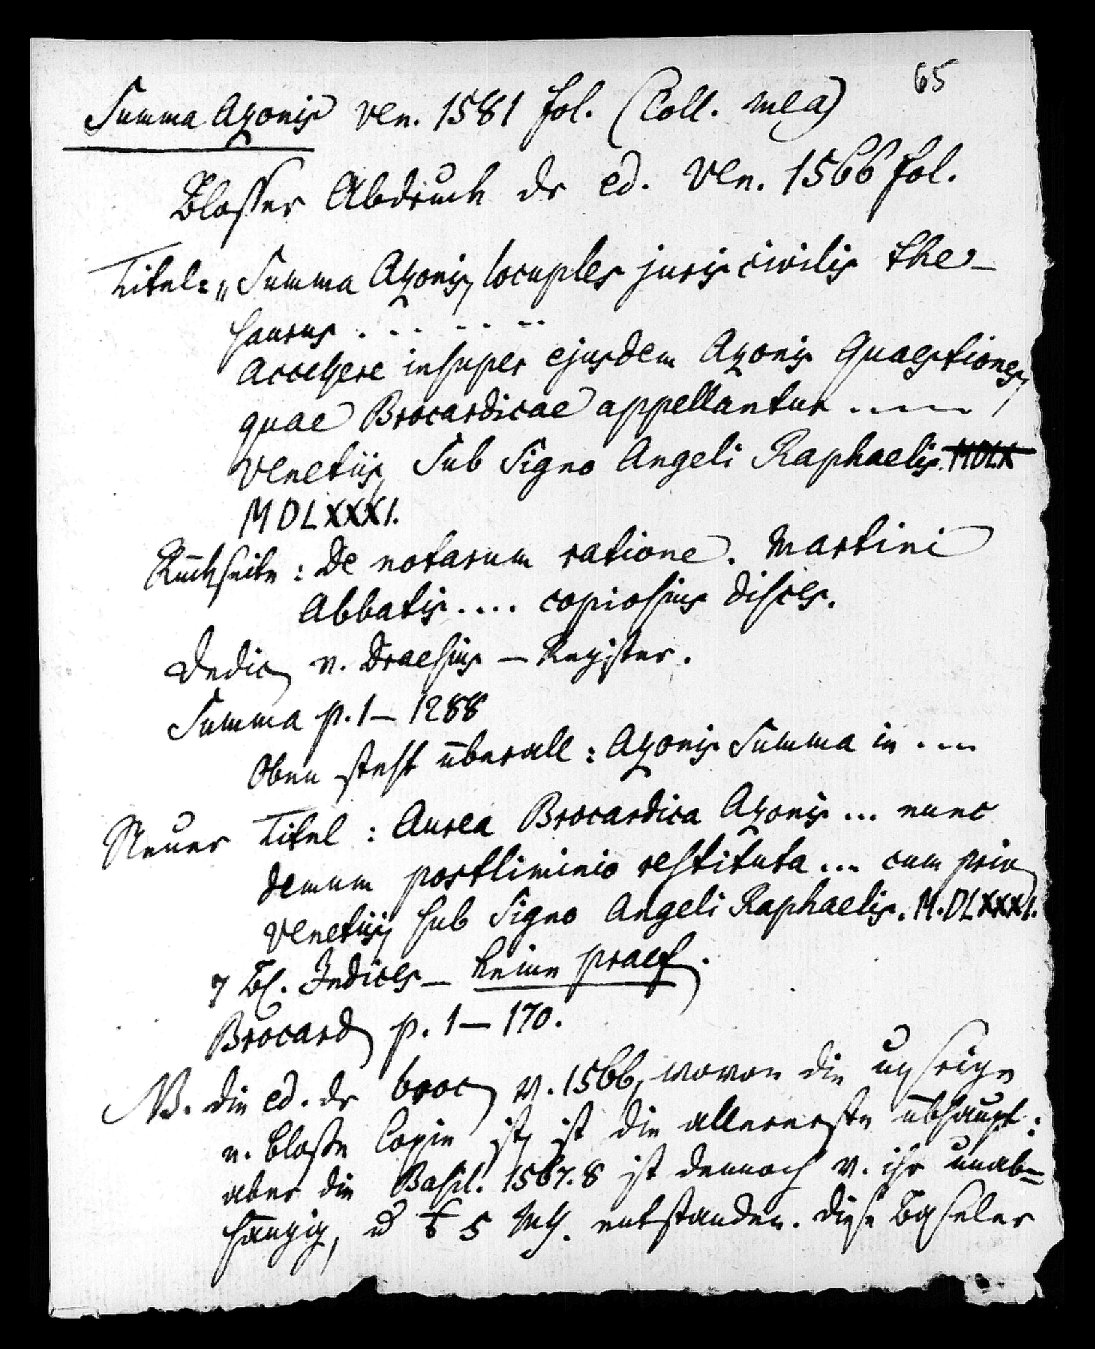 65
Summa Azonis Ven. 1581 fol. (Coll. mea)
Blosser Abdruck dr ed. Ven. 1566 fol.
Titel: „Summa Azonis, locuples juris civilis the-
saurus . . . . . . .
Accessere insuper ejusdem Azonis Quaestiones,
quae Brocardicae appellantur .....
Venetiis, Sub Signo Angeli Raphaelis. MDLX
MDLXXXI.
Rückseite: De notarum ratione. Martini
Abbatis.... copiosius disces.
Dedic. v. Draesius — Register.
Summa p. 1 — 1288
Oben steht überall: Azonis Summa in ....
Neuer Titel: Aurea Brocardica Azonis ... nunc
demum postliminio restituta ... cum priv.
Venetiis, sub Signo Angeli Raphaelis. M.DLXXXI.
7 Bl. Indices — keine praef.
Brocard. p. 1 — 170.
NB. die ed. dr broc. v. 1566, wovon die
n. blosse Copie ist, ist die allererste übhaupt:
aber die Basil. 1567.8 ist dennoch v. ihr unab-
hängig, u 5 entstanden. diese Baseler